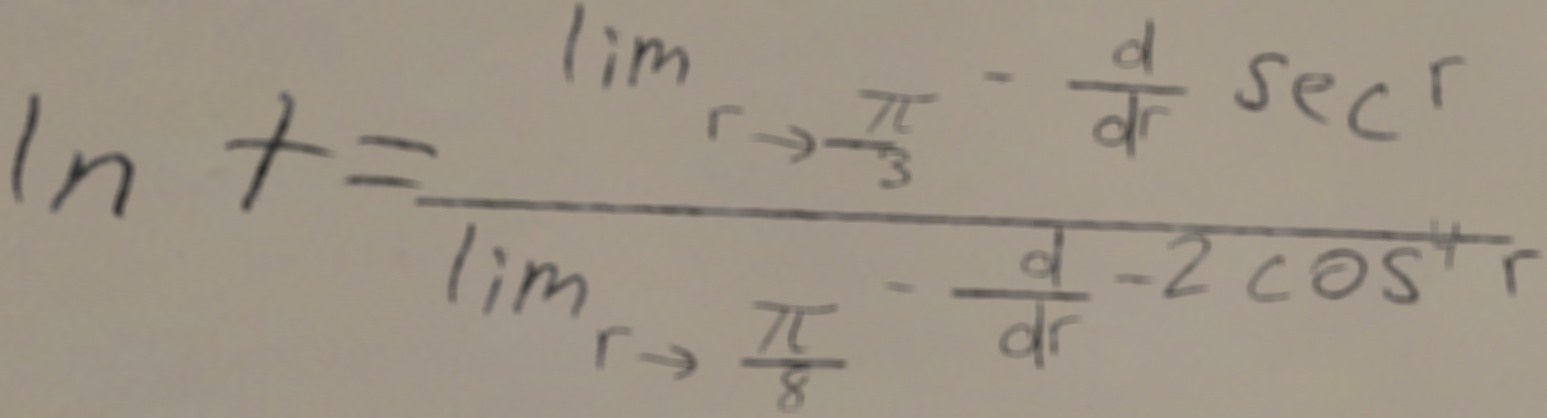 ln t = \frac{\lim_{r \to \frac{\pi}{3}^-} \frac{d}{dr} \sec r}{\lim_{r \to \frac{\pi}{8}^-} \frac{d}{dr} -2 \cos^4 r}